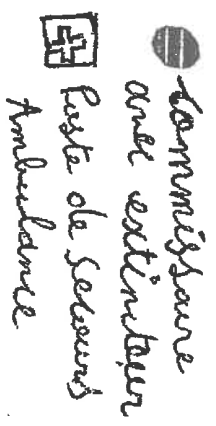 Commissaire
avec extincteur
Poste de Secours
Ambulance